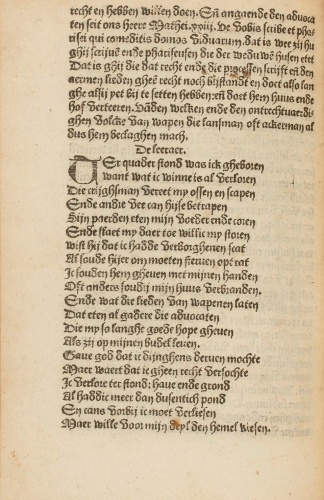 recht en hebben willen doen. Eñ angaende den aduoca
ten seit ons heere Mathei. xxiij. Ve vobis scribe et pha
risei qui comeditis domos viduarum. dat is wee zij hu
ghij scriuē ende phariseusen die der weduwē husen etet
Dat is ghij die dat recht ende die processen scrijft eñ den
aermen lieden ghee recht noch bijstandt en doet also lan
ghe alsij yet bij te setten hebben: eñ doet hem huus ende
hof verteeren. Vāden welken ende den ontrechtuerdi
ghen volcke van wapen die lansman oft ackerman al
dus hem beclaghen mach.
De leeraer.
Ter quader stond was ick gheboren
want wat ic winne is al verloren
Die crijghsman vereet my ossen en scapen
Ende andre vee can hijse betrapen
Sijn paerden eten mijn voeder ende coren
Ende slaet my daer toe willic my storen
wist hij dat ic hadde verborghenen scat
Al soude hijer om moeten sterven opt rat
Ic souden hem gheuen met mijnen handen
Oft anders soudij mijn huus verbranden.
Ende wat die lieden van wapenen laten
Dat eten al gadere die aduocaten
Die my so langhe goede hope gheuen
Als zij op mijnen budel leuen.
Gaue god dat ic dijnghens deruen mochte
Maer waert dat ic gheen recht versochte
Ic verlore ter stond: haue ende grond
Al haddic meer dan dusentich pond
En cans voorbij ic moet verliesen
Maer wille voor mijn deyl den hemel kiesen.